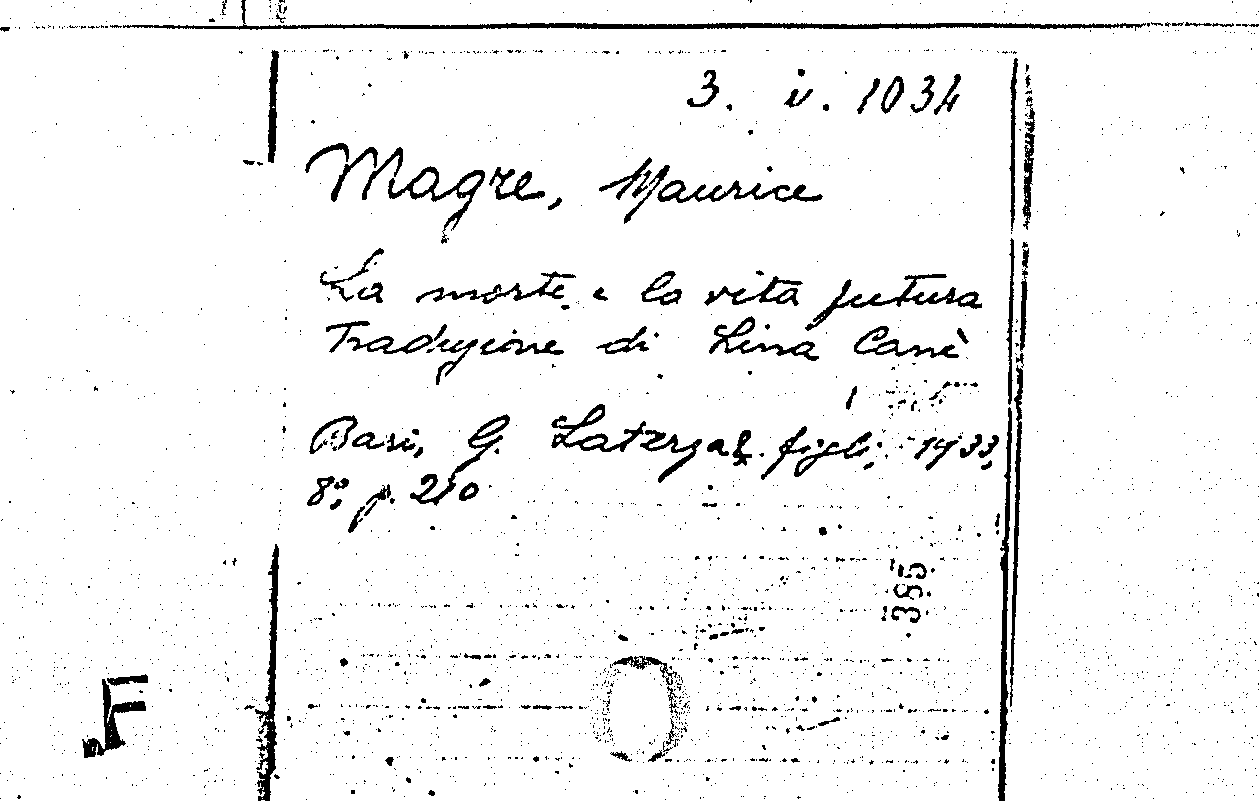 3. iv. 1034
Magre, Maurice
La morte e la vita futura
Traduzione di Lina Canè
Bari, G. Laterza & figli, 1933,
8°, p. 210
385
F